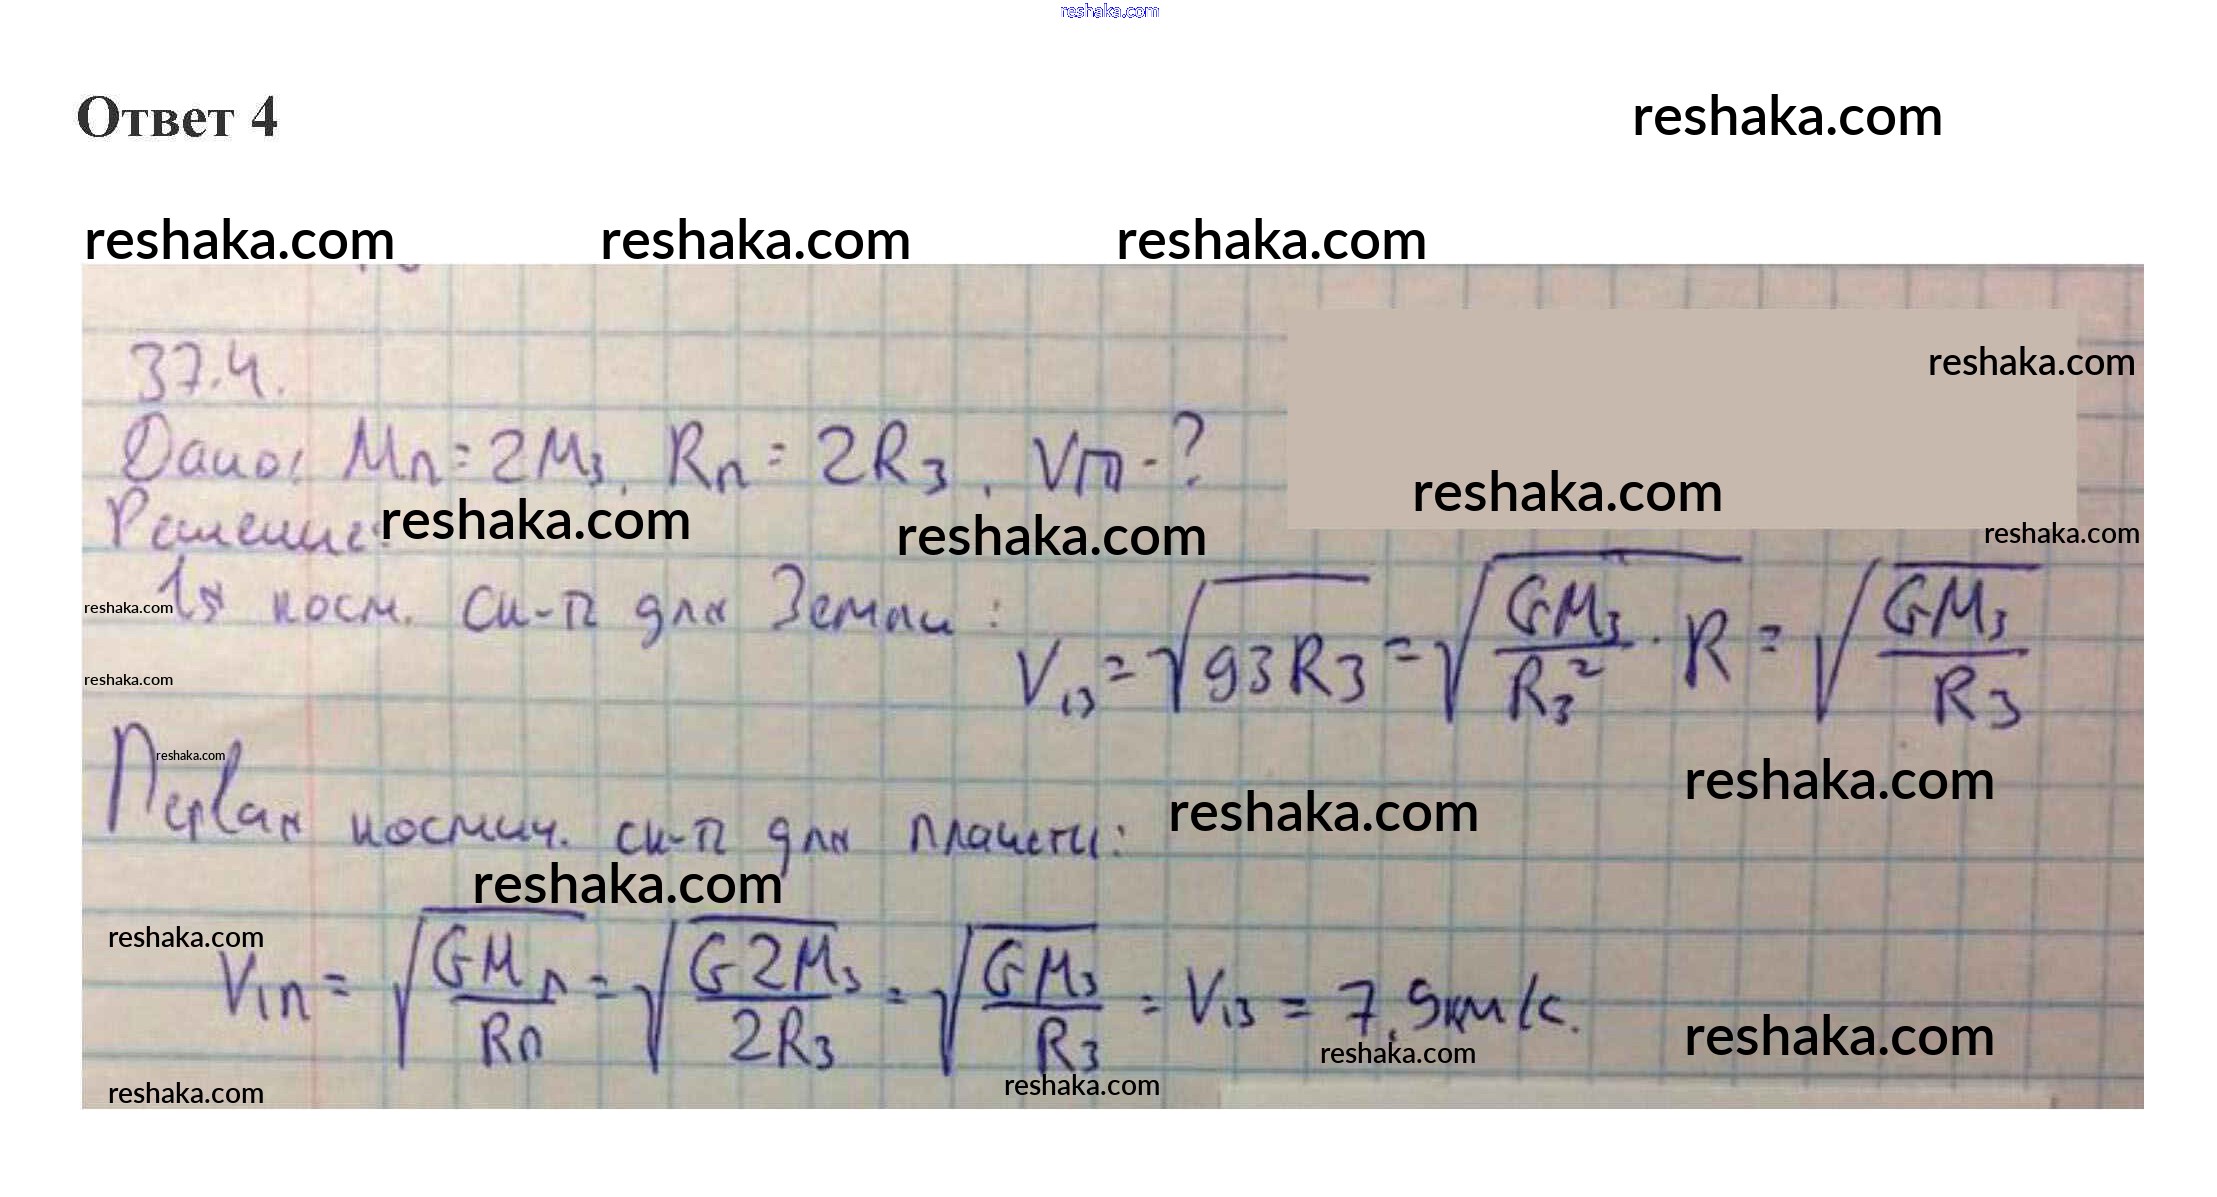 reshaka.com
Ответ 4
reshaka.com
reshaka.com reshaka.com reshaka.com
37.4.
reshaka.com
Дано: Mп = 2Mз, Rп = 2Rз, Vп - ?
reshaka.com
Решение:
reshaka.com reshaka.com
reshaka.com
1я косм. ск-п для Земли:
reshaka.com
V₁з = √gзRз = √GMз/Rз² · R = √GMз/Rз
reshaka.com
reshaka.com
Первая космич. ск-п для планеты:
reshaka.com reshaka.com
reshaka.com
reshaka.com
V₁п = √GMп/Rп = √G2Mз/2Rз = √GMз/Rз = V₁з = 7,9км/с.
reshaka.com reshaka.com
reshaka.com reshaka.com